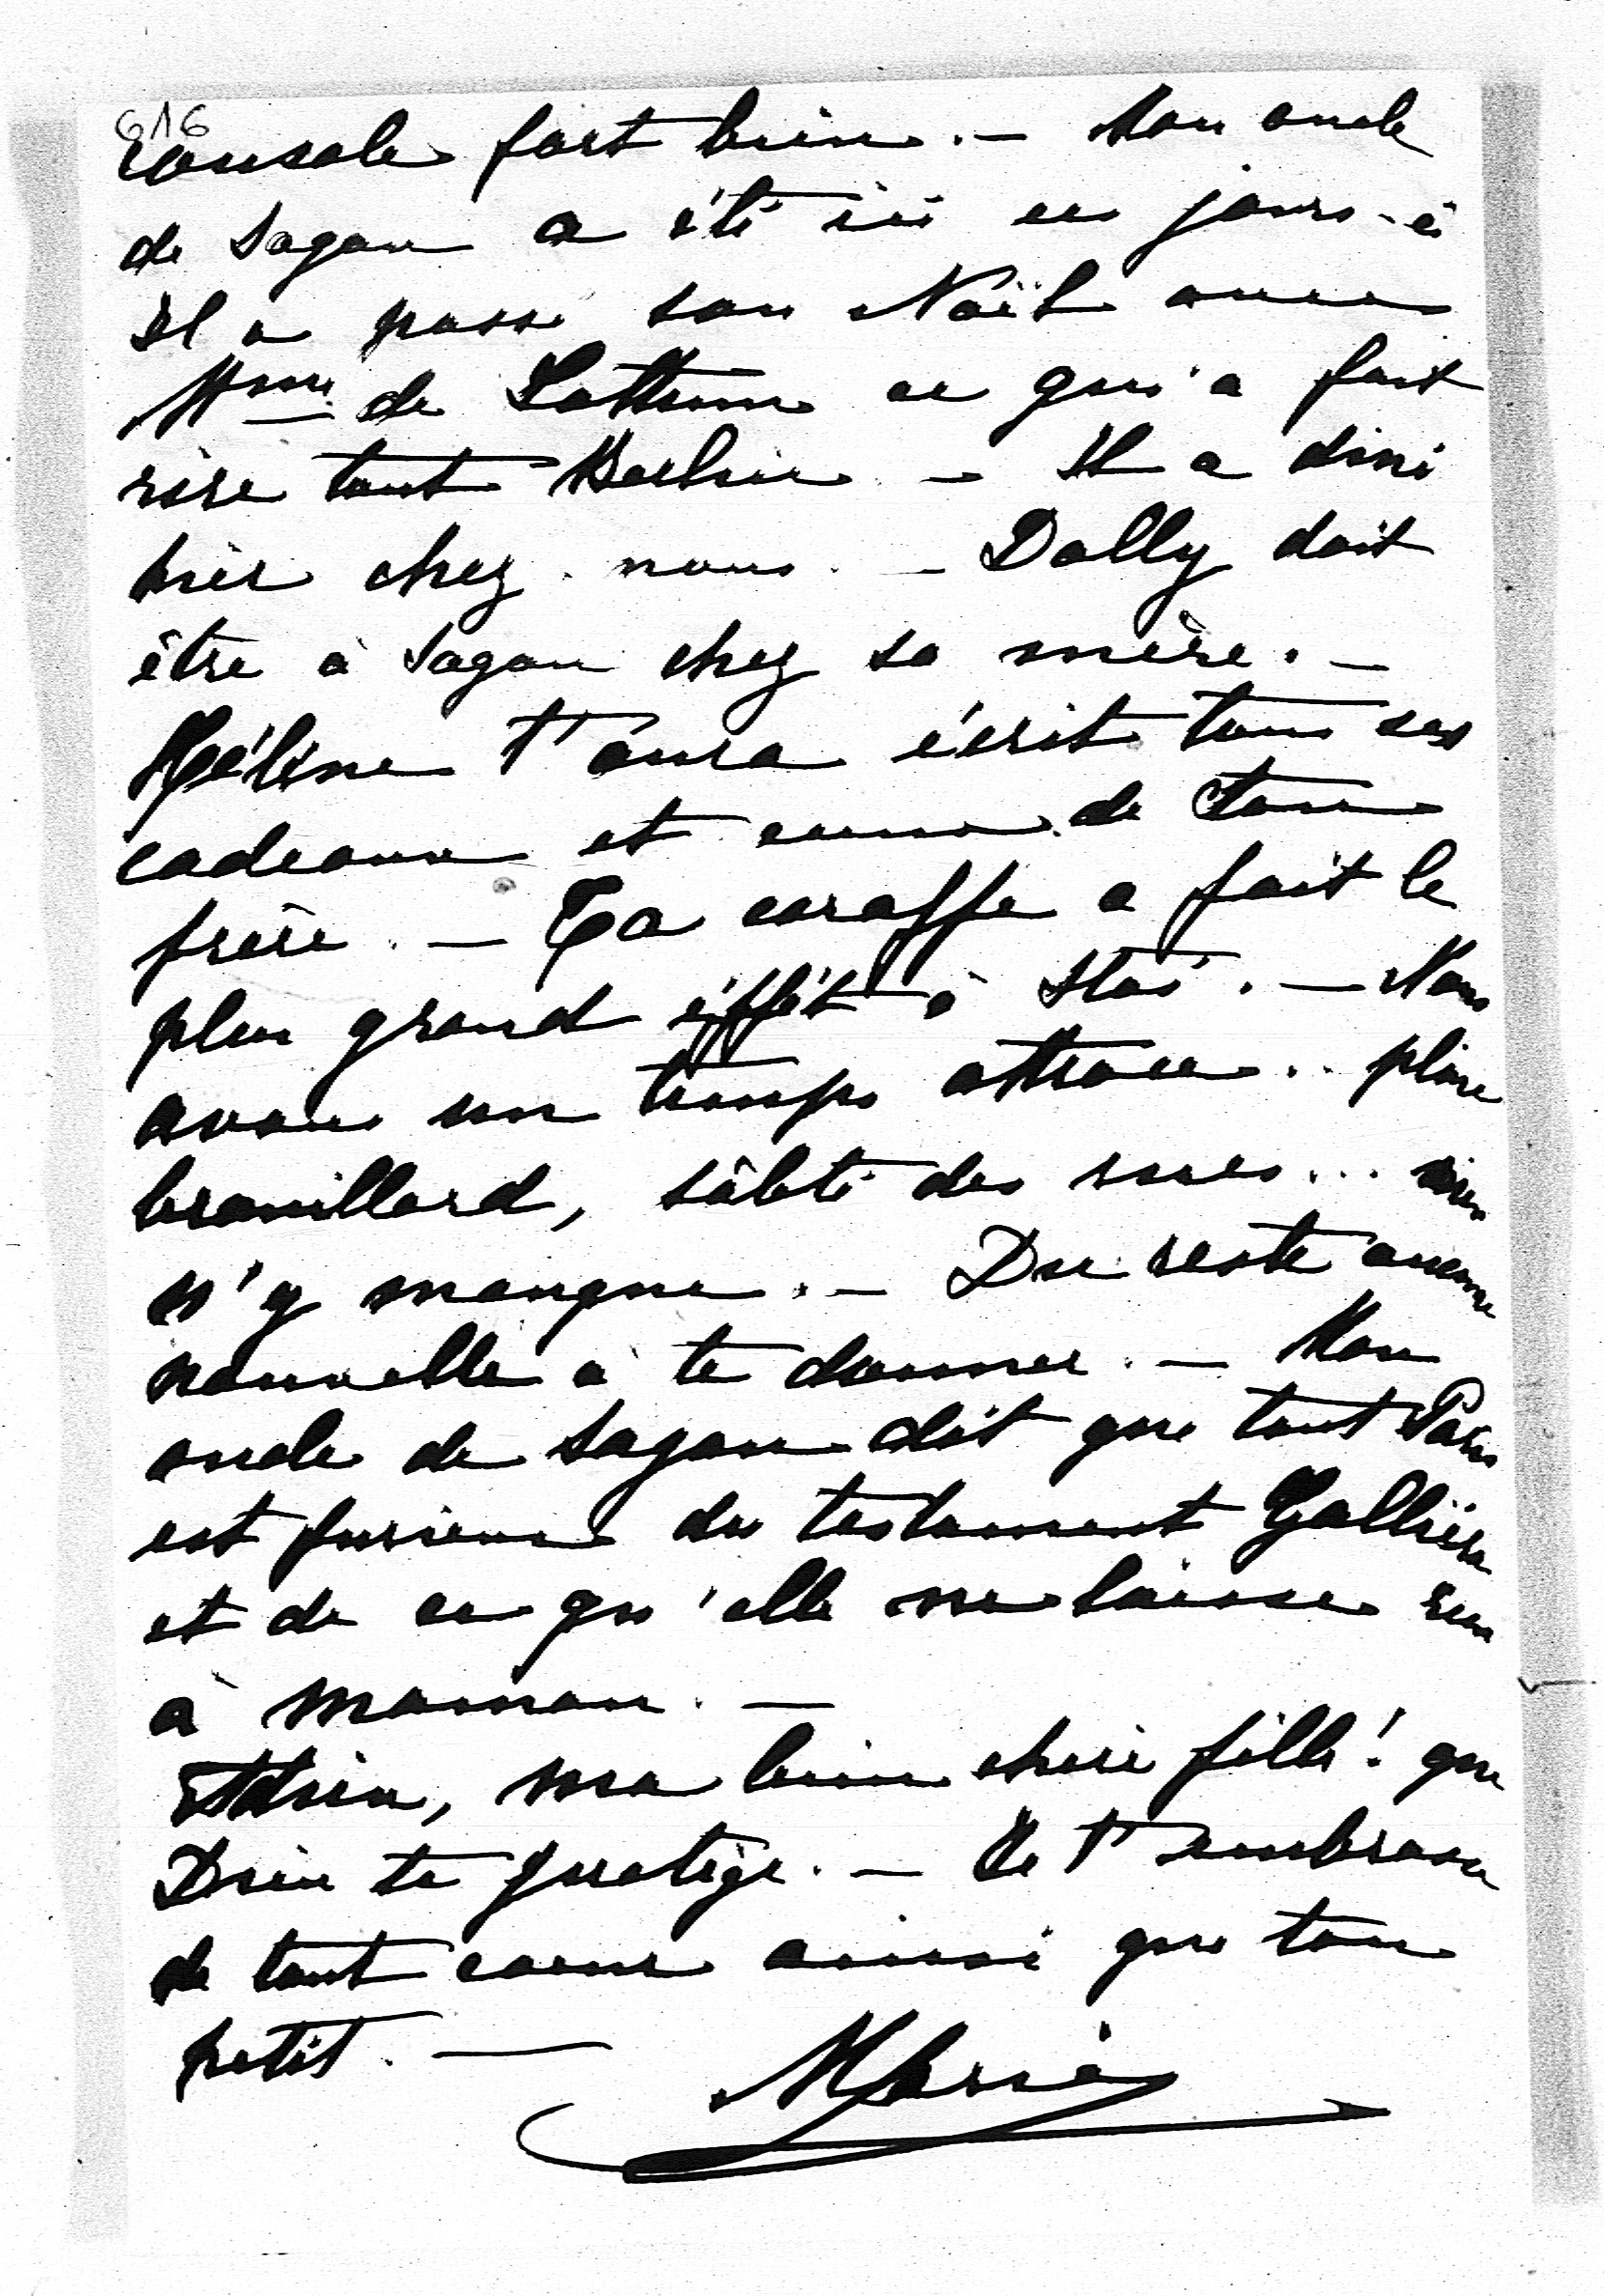 616
console fort bien. — Mon oncle
de Sagan a été ici ces jours-ci
Il a passé son Noël avec
Mme de Lottum ce qui a fait
rire tout Berlin — Il a diné
hier chez nous. — Dolly doit
être à Sagan chez sa mère. —
Hélène t'aura écrit tous ses
cadeaux et ceux de ton
frère. — Ta caraffe a fait le
plus grand éffét à Stas. — Nous
avons un temps atroce.. pluie
brouillard, sâleté des rues... rien
n'y manque. — Du reste aucune
nouvelle à te donner. — Mon
oncle de Sagan dit que tout Paris
est furieux du testament Galliera
et de ce qu'elle ne laisse rien
à maman. —
Adieu, ma bien chère fille! que
Dieu te protège. — Je t'embrasse
de tout coeur ainsi que ton
petit. — Marie